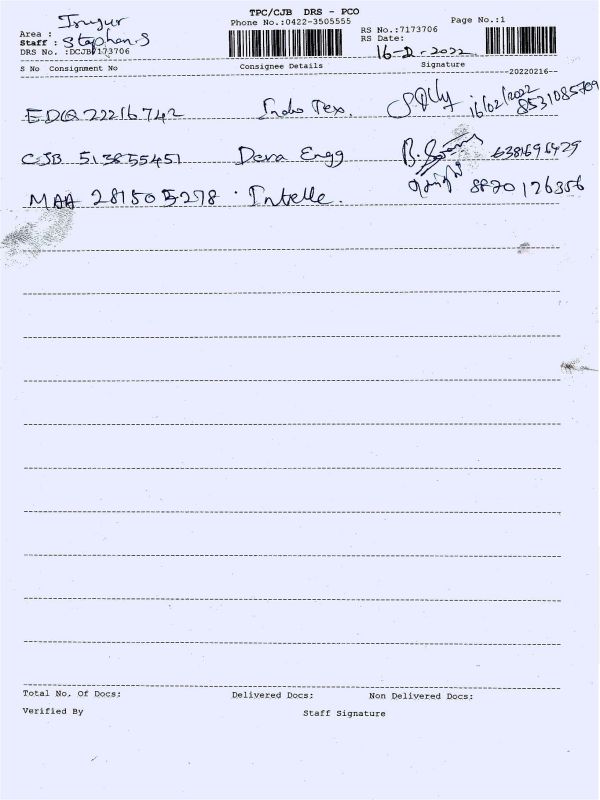 TPC/CJB DRS - PCO
Phone No.:0422-3505555
Page No.:1
Area : Irugur
Staff : Stephan.S
DRS No. :DCJB7173706
RS No.:7173706
RS Date:
16-2-2022
S No Consignment No Consignee Details Signature
20220216
EDQ22216742 Indo Tex. 16/02/2022
8531085709
CJB 513855451 Deva Engg 6381696429
MAA 281505278 Intelle. 8870126356
Total No. Of Docs: Delivered Docs: Non Delivered Docs:
Verified By Staff Signature